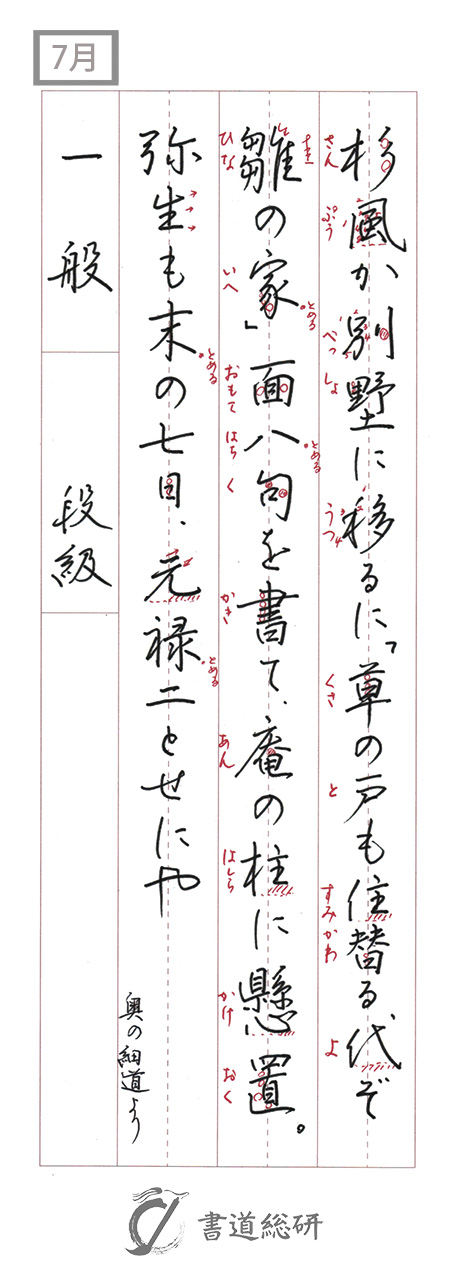 7月
杉風か別墅に移るに「草の戸も住替る代ぞ
さん ぷう べっ しょ うつ くさ と すみかわ よ
雛の家」面八句を書て、庵の柱に懸置。
ひな いへ おもて はち く かき あん はしら かけ おく
とめる
とめる
弥生も末の七日、元禄二とせにや
とめる
とめる
奥の細道より
一般
段級
書道総研